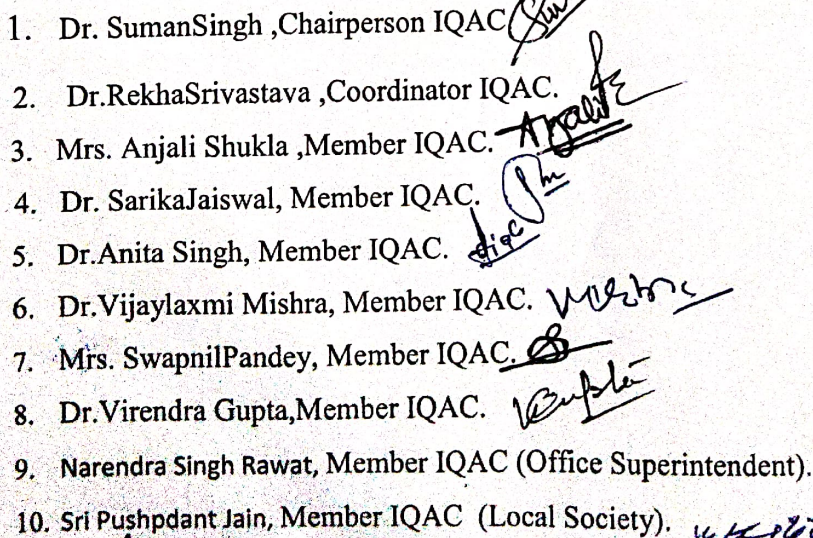 1. Dr. SumanSingh ,Chairperson IQAC
2. Dr.RekhaSrivastava ,Coordinator IQAC.
3. Mrs. Anjali Shukla ,Member IQAC.
4. Dr. SarikaJaiswal, Member IQAC.
5. Dr.Anita Singh, Member IQAC.
6. Dr.Vijaylaxmi Mishra, Member IQAC.
7. Mrs. SwapnilPandey, Member IQAC.
8. Dr.Virendra Gupta,Member IQAC. VGupta
9. Narendra Singh Rawat, Member IQAC (Office Superintendent).
10. Sri Pushpdant Jain, Member IQAC (Local Society).